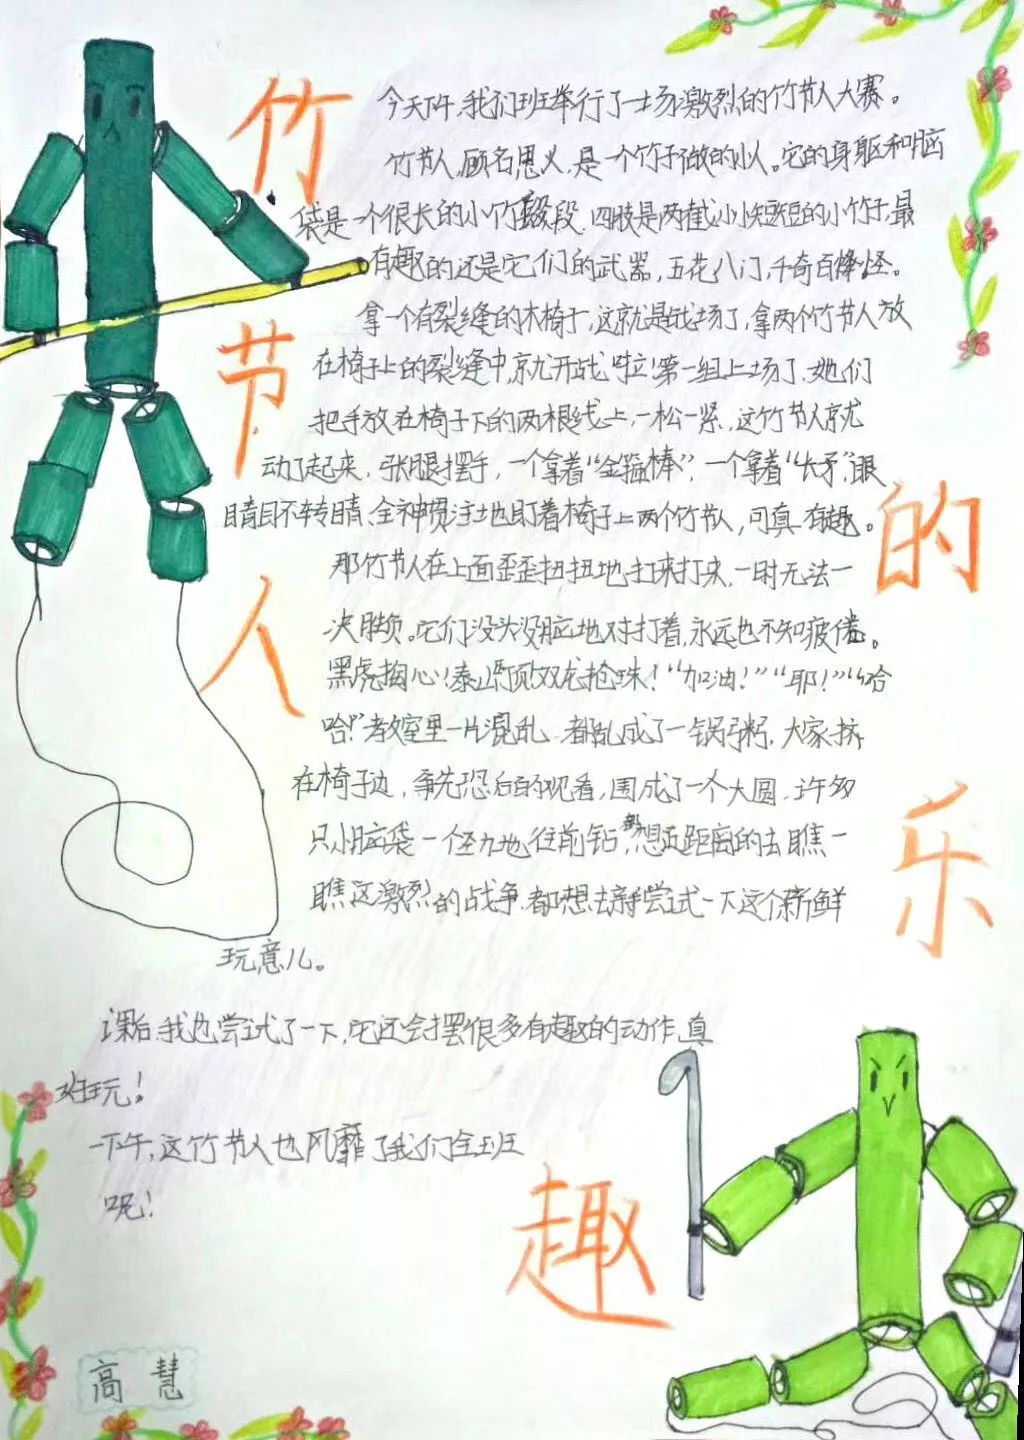 竹节人的乐趣
今天下午,我们班举行了一场激烈的竹节人大赛。
竹节人,顾名思义,是一个竹子做的小人。它的身躯和脑
袋是一个很长的小竹段,四肢是两截小小短短的小竹子,最
有趣的还是它们的武器,五花八门,千奇百怪。
拿一个有裂缝的木椅子,这就是战场了,拿两个竹节人放
在椅子上的裂缝中,就开战啦!第一组上场了,她们
把手放在椅子下的两根线上,一松一紧,这竹节人就
动了起来,张腿摆手,一个拿着“金箍棒”,一个拿着“长矛”,眼
睛目不转睛、全神贯注地盯着椅子上两个竹节人,可真有趣。
那竹节人在上面歪歪扭扭地打来打来,一时无法一
决胜负。它们没头没脑地对打着,永远也不知疲倦。
黑虎掏心!泰山压顶!双龙抢珠!“加油!”“耶!”“哈
哈!”教室里一片混乱,都乱成了一锅粥,大家挤
在椅子边,争先恐后的观看,围成了一个大圆,许多
只小脑袋一个劲地往前钻,都想近距离的去瞧一
瞧这激烈的战争,都想去亲手尝试一下这个新鲜
玩意儿。
课后,我也尝试了一下,它还会摆很多有趣的动作,真
好玩!
一下午,这竹节人也风靡了我们全班
呢!
高慧